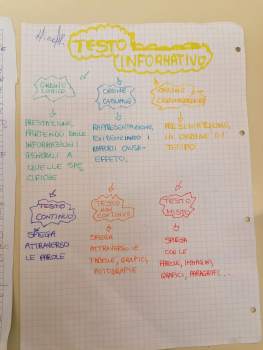 TESTO
INFORMATIVO
ORDINE
LOGICO
ORDINE
CAUSALE
ORDINE
CRONOLOGICO
PRESENTAZIONE,
PARTENDO DALLE
INFORMAZIONI
GENERALI A
QUELLE SPE
CIFICHE
RAPPRESENTAZIONE,
EVIDENZIANDO I
RAPPORTI CAUSA-
EFFETTO.
PRESENTAZIONE,
IN ORDINE DI
TEMPO
TESTO
CONTINUO
TESTO
NON
CONTINUO
TESTO
MISTO
SPIEGA
ATTRAVERSO
LE PAROLE
SPIEGA
ATTRAVERSO LE
TABELLE, GRAFICI,
FOTOGRAFIE
SPIEGA
CON LE
PAROLE, IMMAGINI,
GRAFICI, PARAGRAFI...